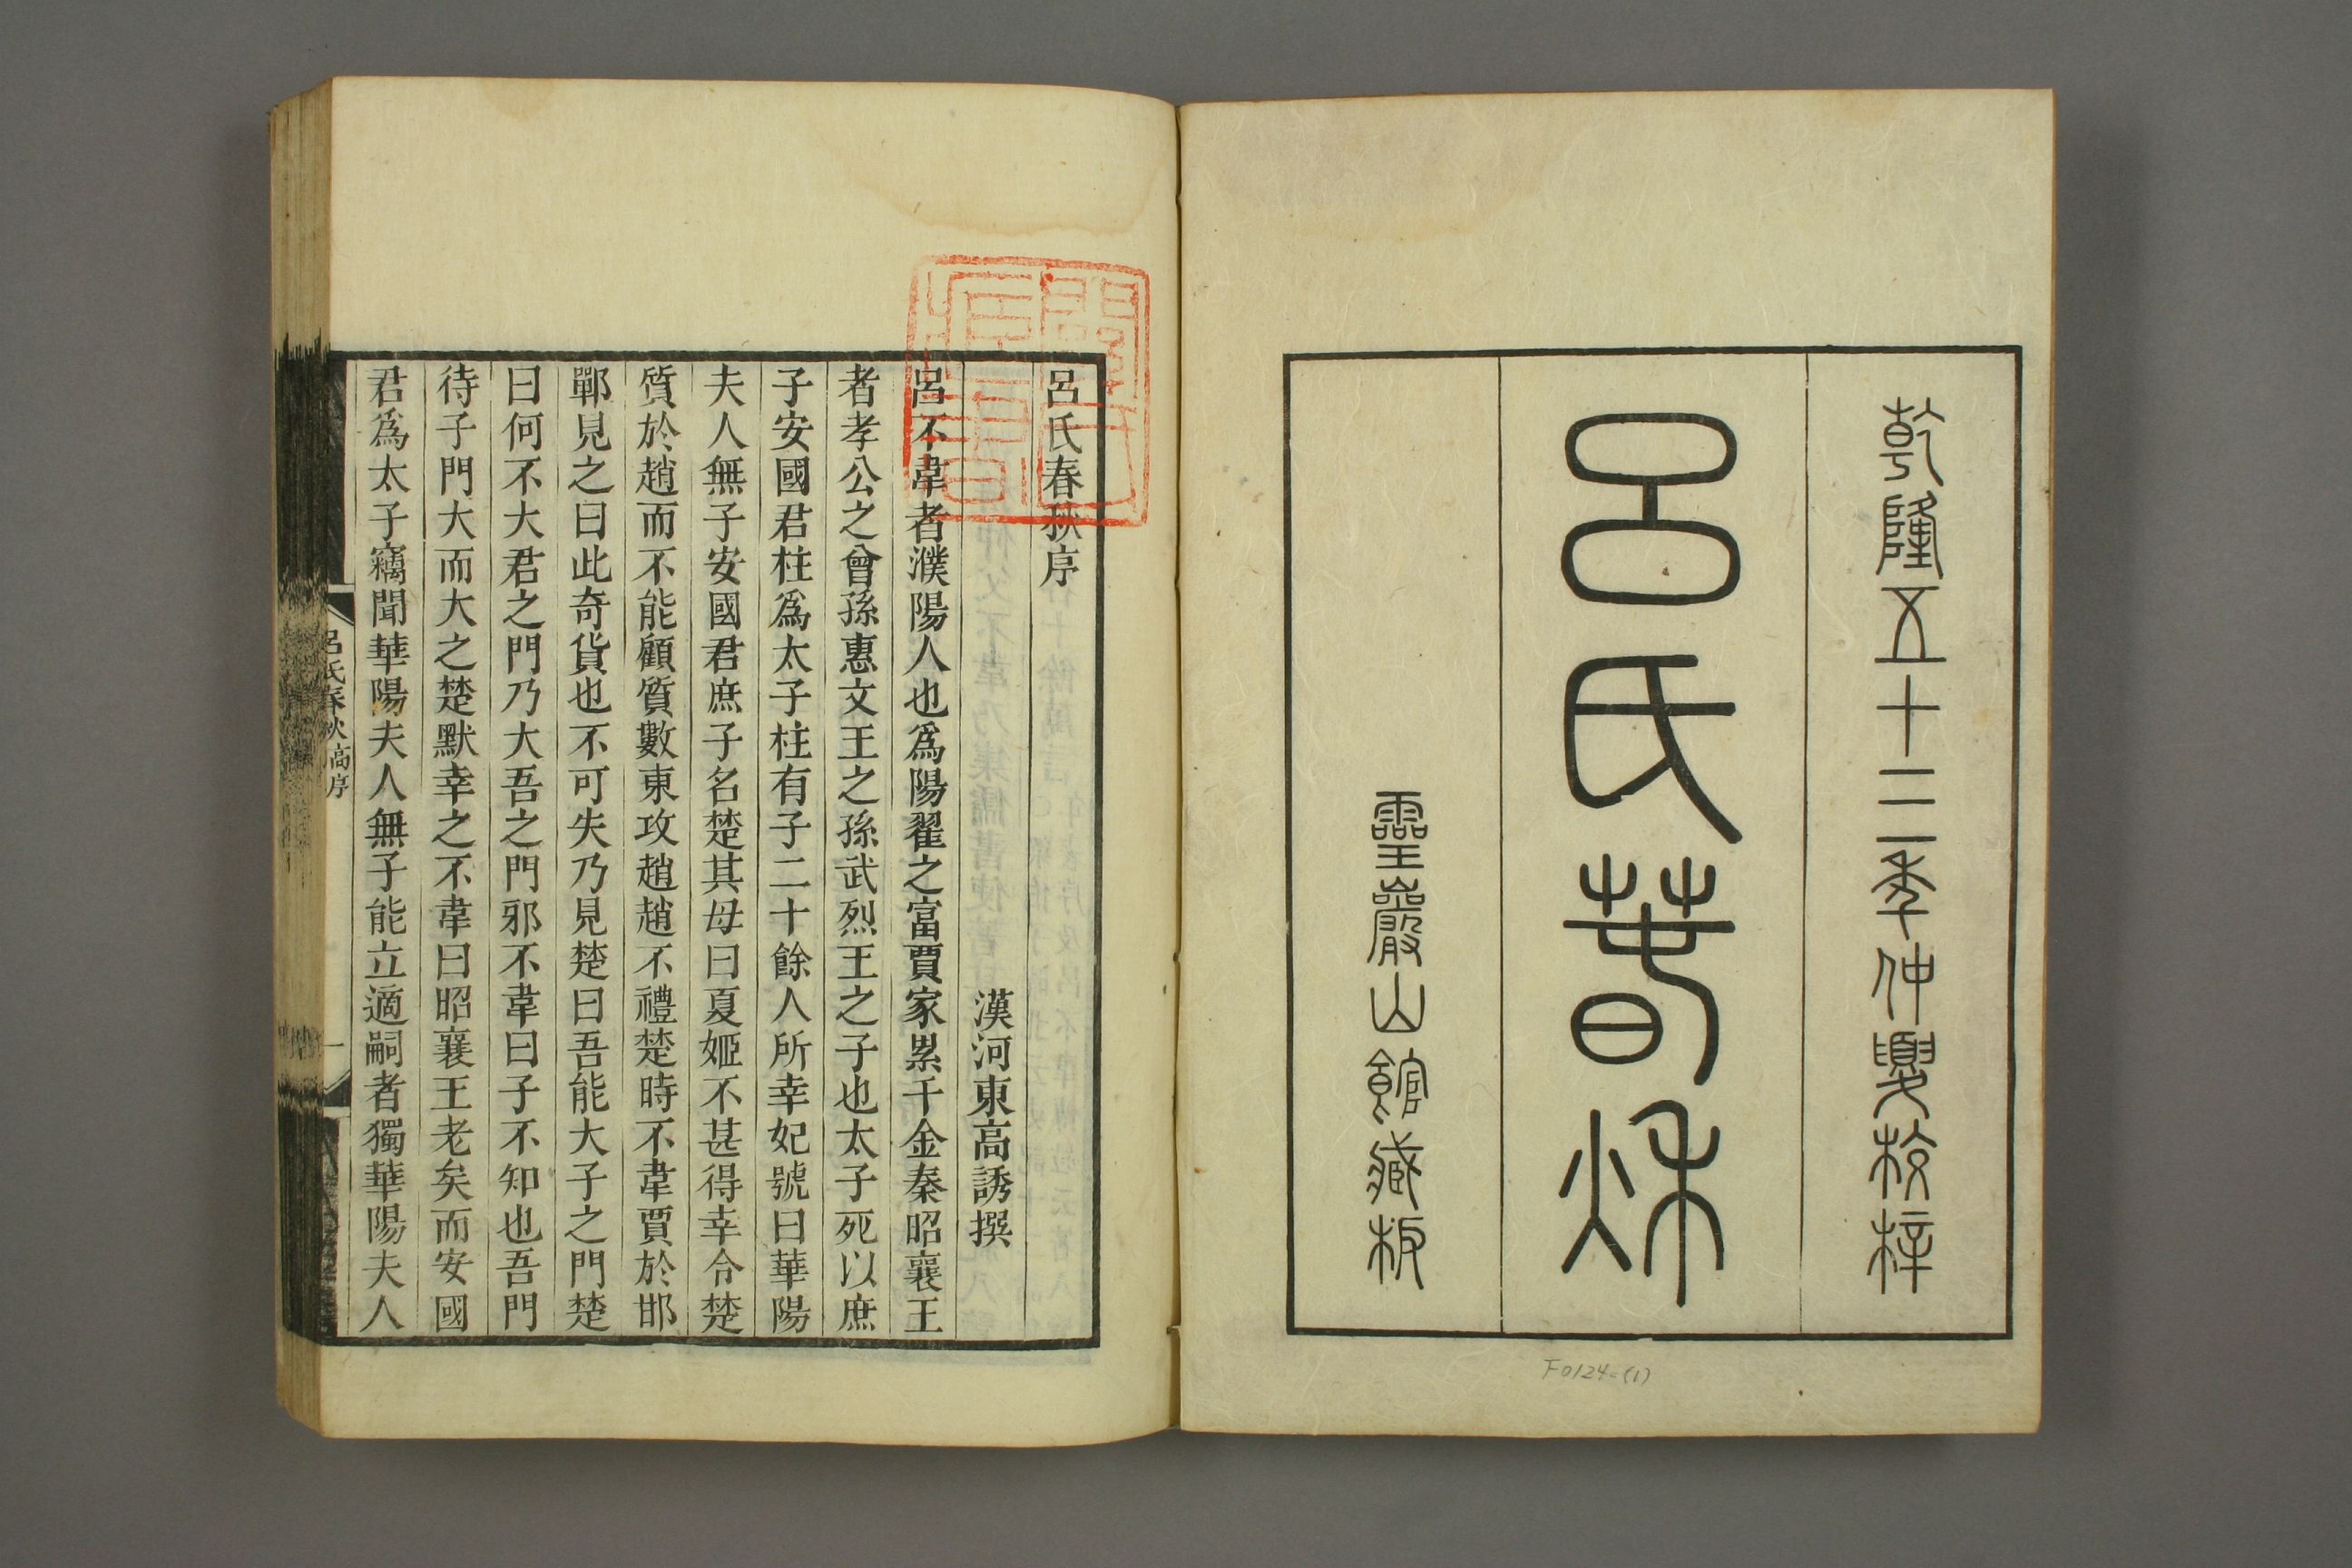 乾隆五十三季仲夏校梓
呂氏萅秌
靈巖山館藏板
F0124-(1)
呂氏春秋序
漢河東高誘撰
呂不韋者濮陽人也爲陽翟之富賈家累千金秦昭襄王
者孝公之曾孫惠文王之孫武烈王之子也太子死以庶
子安國君柱爲太子柱有子二十餘人所幸妃號曰華陽
夫人無子安國君庶子名楚其母曰夏姬不甚得幸令楚
質於趙而不能顧質數東攻趙趙不禮楚時不韋賈於邯
鄲見之曰此奇貨也不可失乃見楚曰吾能大子之門楚
曰何不大君之門乃大吾之門邪不韋曰子不知也吾門
待子門大而大之楚默幸之不韋曰昭襄王老矣而安國
君爲太子竊聞華陽夫人無子能立適嗣者獨華陽夫人
呂氏春秋高序
一